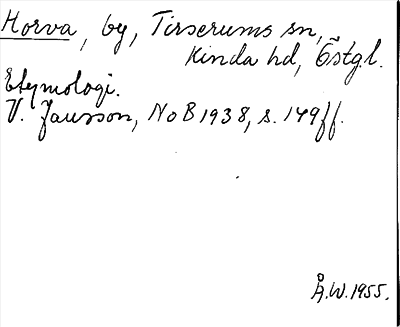 Horva, by, Tirserums sn,
Kinda hd, Östgl.
Etymologi.
V. Jansson, NoB 1938, s. 149ff.
Å.W. 1955.